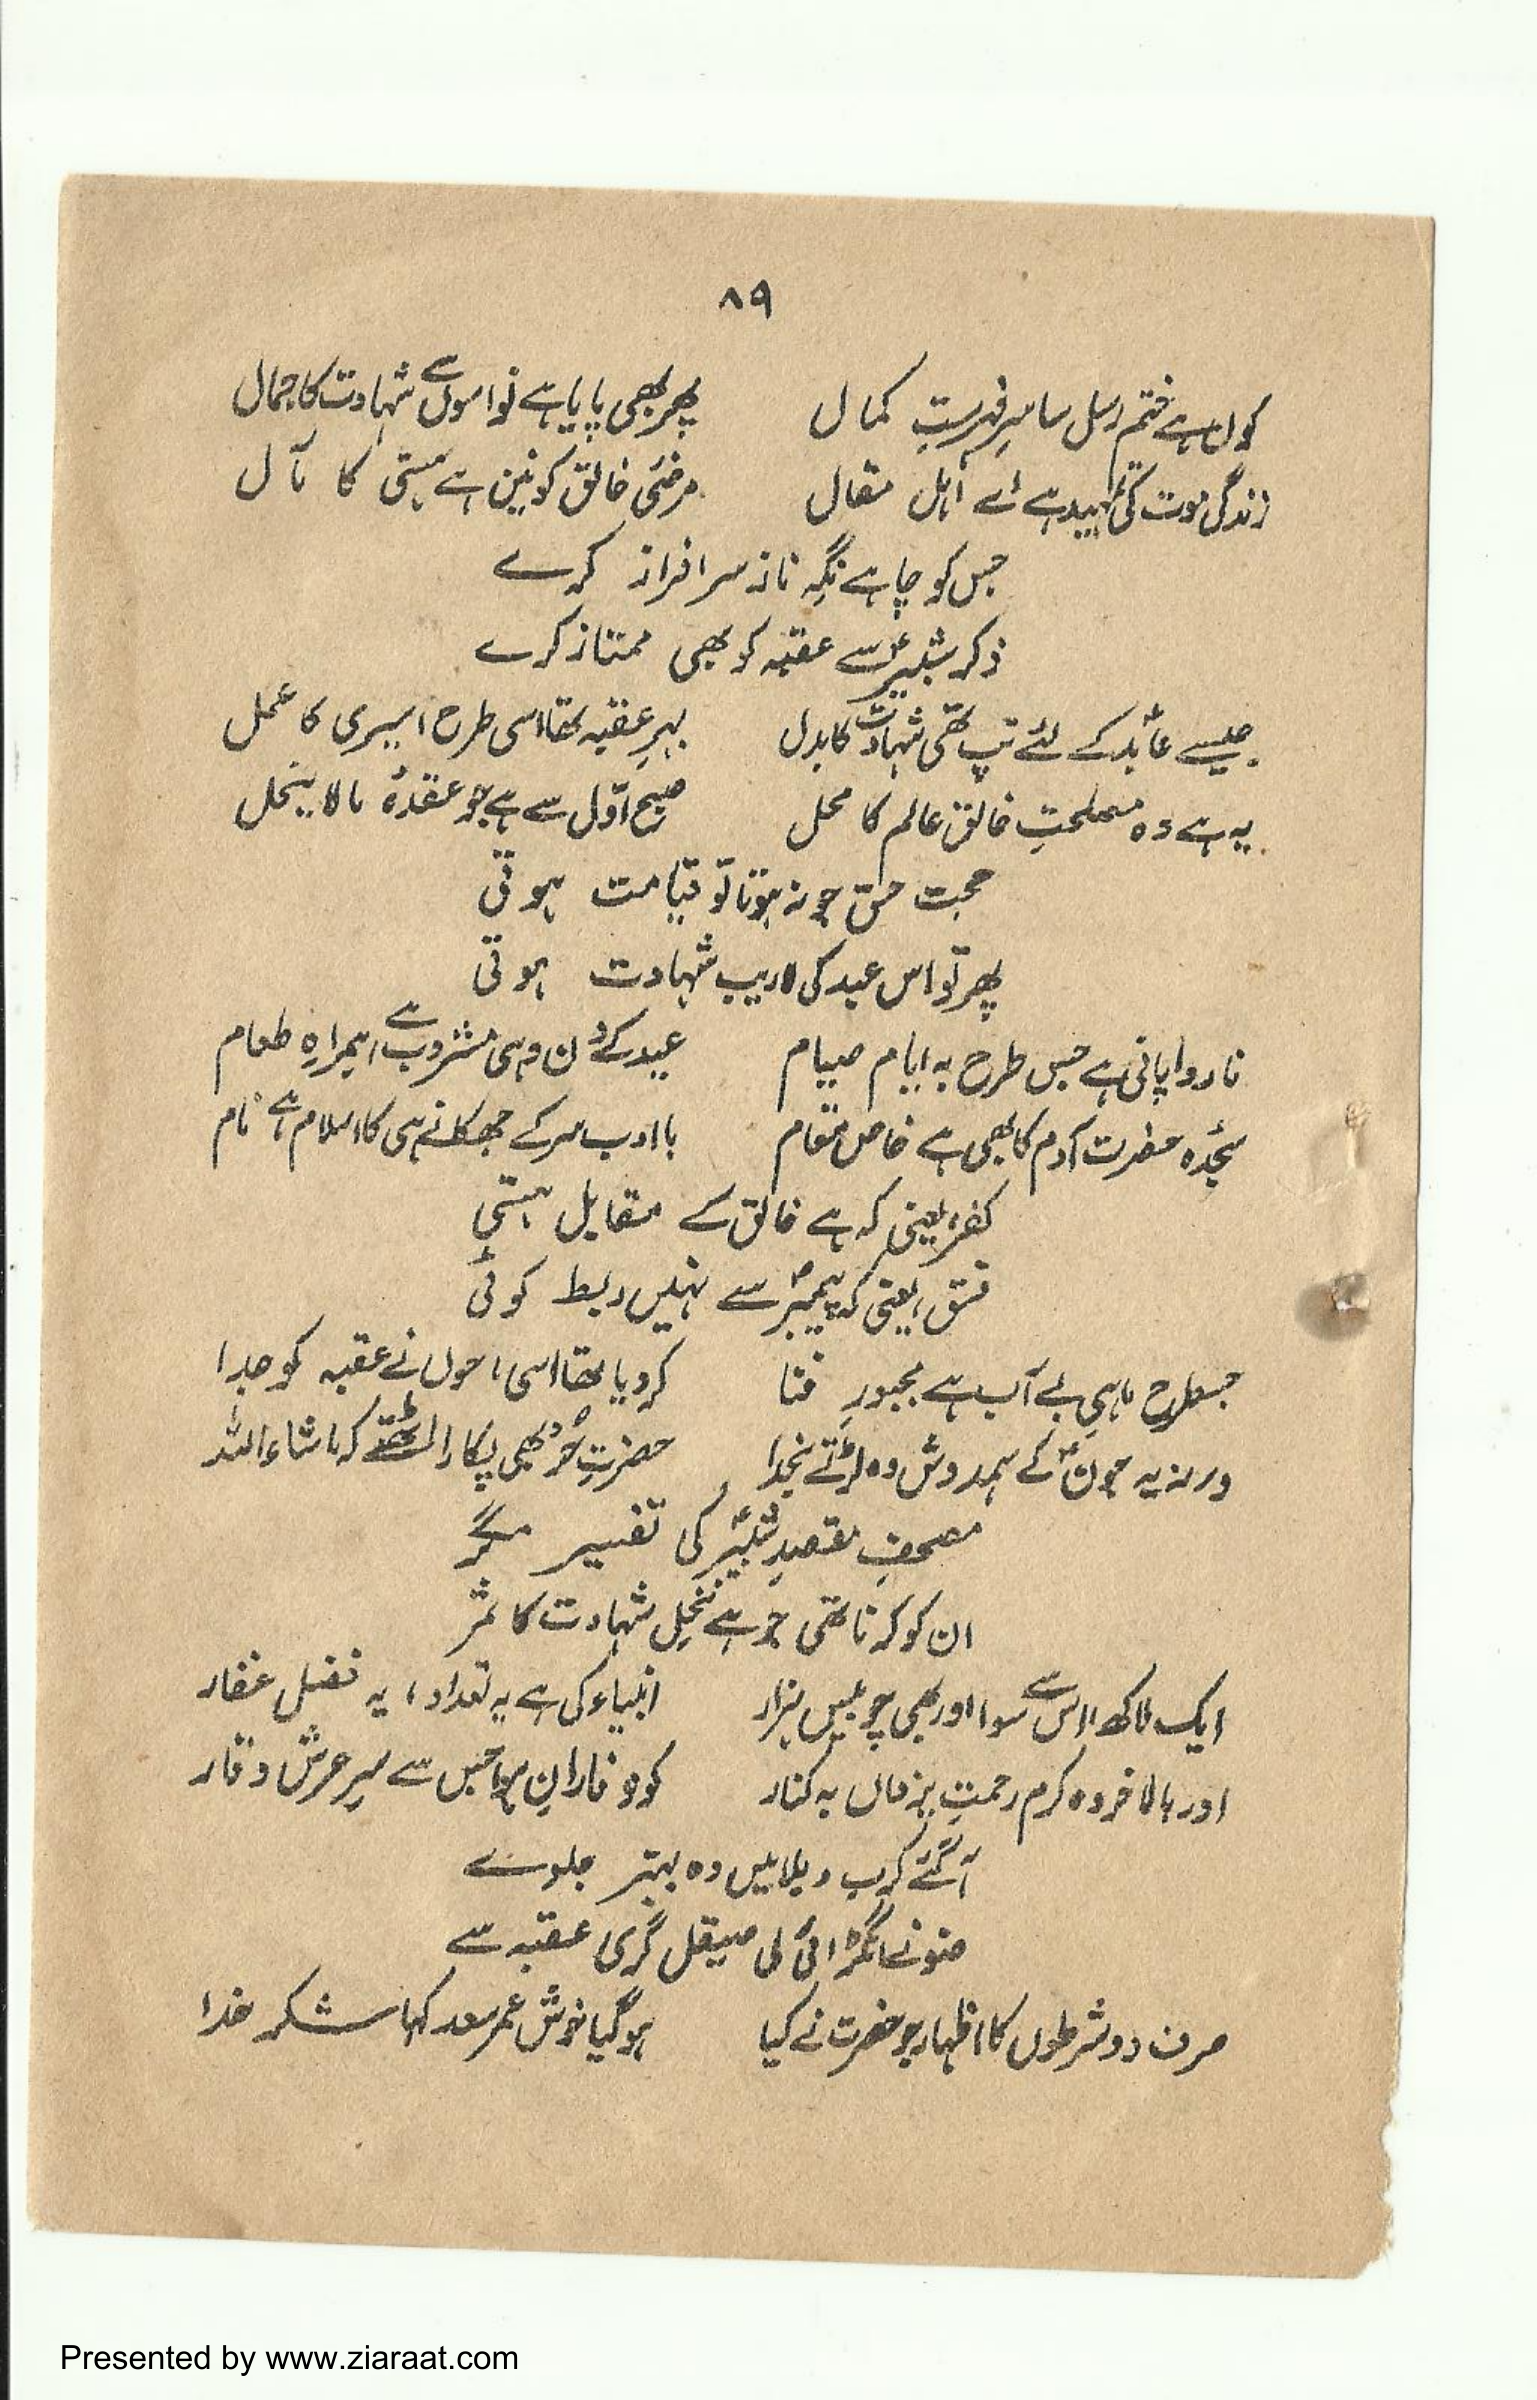 ۸۹
کون ہے ختم رسل سا سرِ فہرستِ کمال    پھر بھی پایا ہے نواسوں سے شہادت کا جمال
زندگی موت کی تمہید ہے اے اہل مقال    مرضئی خالق کونین ہے ہستی کا مآل
جس کو چاہے نگہِ ناز سرافراز کرے
ذکر شبیرؑ سے عقبہ کو بھی ممتاز کرے
جیسے عابدؑ کے لئے تپ تھی شہادت کا بدل    بہرِ عقبہ تھا اسی طرح اسیری کا عمل
یہ ہے وہ مصلحتِ خالق عالم کا محل    صبح اوّل سے ہے جو عقدۂ مالا ینحل
حجت حق جو نہ ہوتا تو قیامت ہوتی
پھر تو اس عبد کی لاریب شہادت ہوتی
ناروا پانی ہے جس طرح بہ ایام صیام    عید کے دن وہی مشروب ہے ہمراہِ طعام
سجدہ حضرت آدم کا بھی ہے خاص مقام    باادب سر کے جھکانے ہی کا اسلام ہے نام
کفر، یعنی کہ ہے خالق کے مقابل ہستی
فسق، یعنی کہ پیمبرؐ سے نہیں ربط کوئی
جسطرح ماہیِ بے آب ہے مجبورِ فنا    کر دیا تھا اسی ماحول نے عقبہ کو جدا
ورنہ یہ جونؑ کے ہمدوش وہ لڑتے بخدا    حضرتِ حُرؑ بھی پکار اٹھتے کہ ماشاء اللہ
مصحفِ مقصدِ شبیرؑ کی تفسیر مگر
ان کو کرنا تھی جو ہے نخلِ شہادت کا ثمر
ایک لاکھ اس سے سوا اور بھی چوبیس ہزار    انبیاء کی ہے یہ تعداد، یہ فضل غفار
اور بالآخر وہ کرم رحمتِ یزداں بہ کنار    کوہ فاران ہوا جس سے سرِ عرش وقار
آگئے کرب و بلا میں وہ بہتر جلوے
ضو نے انگڑائی لی صیقل گریِ عقبہ سے
صرف دو شرطوں کا اظہار جو حضرت نے کیا    ہو گیا خوش عمر سعد کہا شکر خدا
Presented by www.ziaraat.com